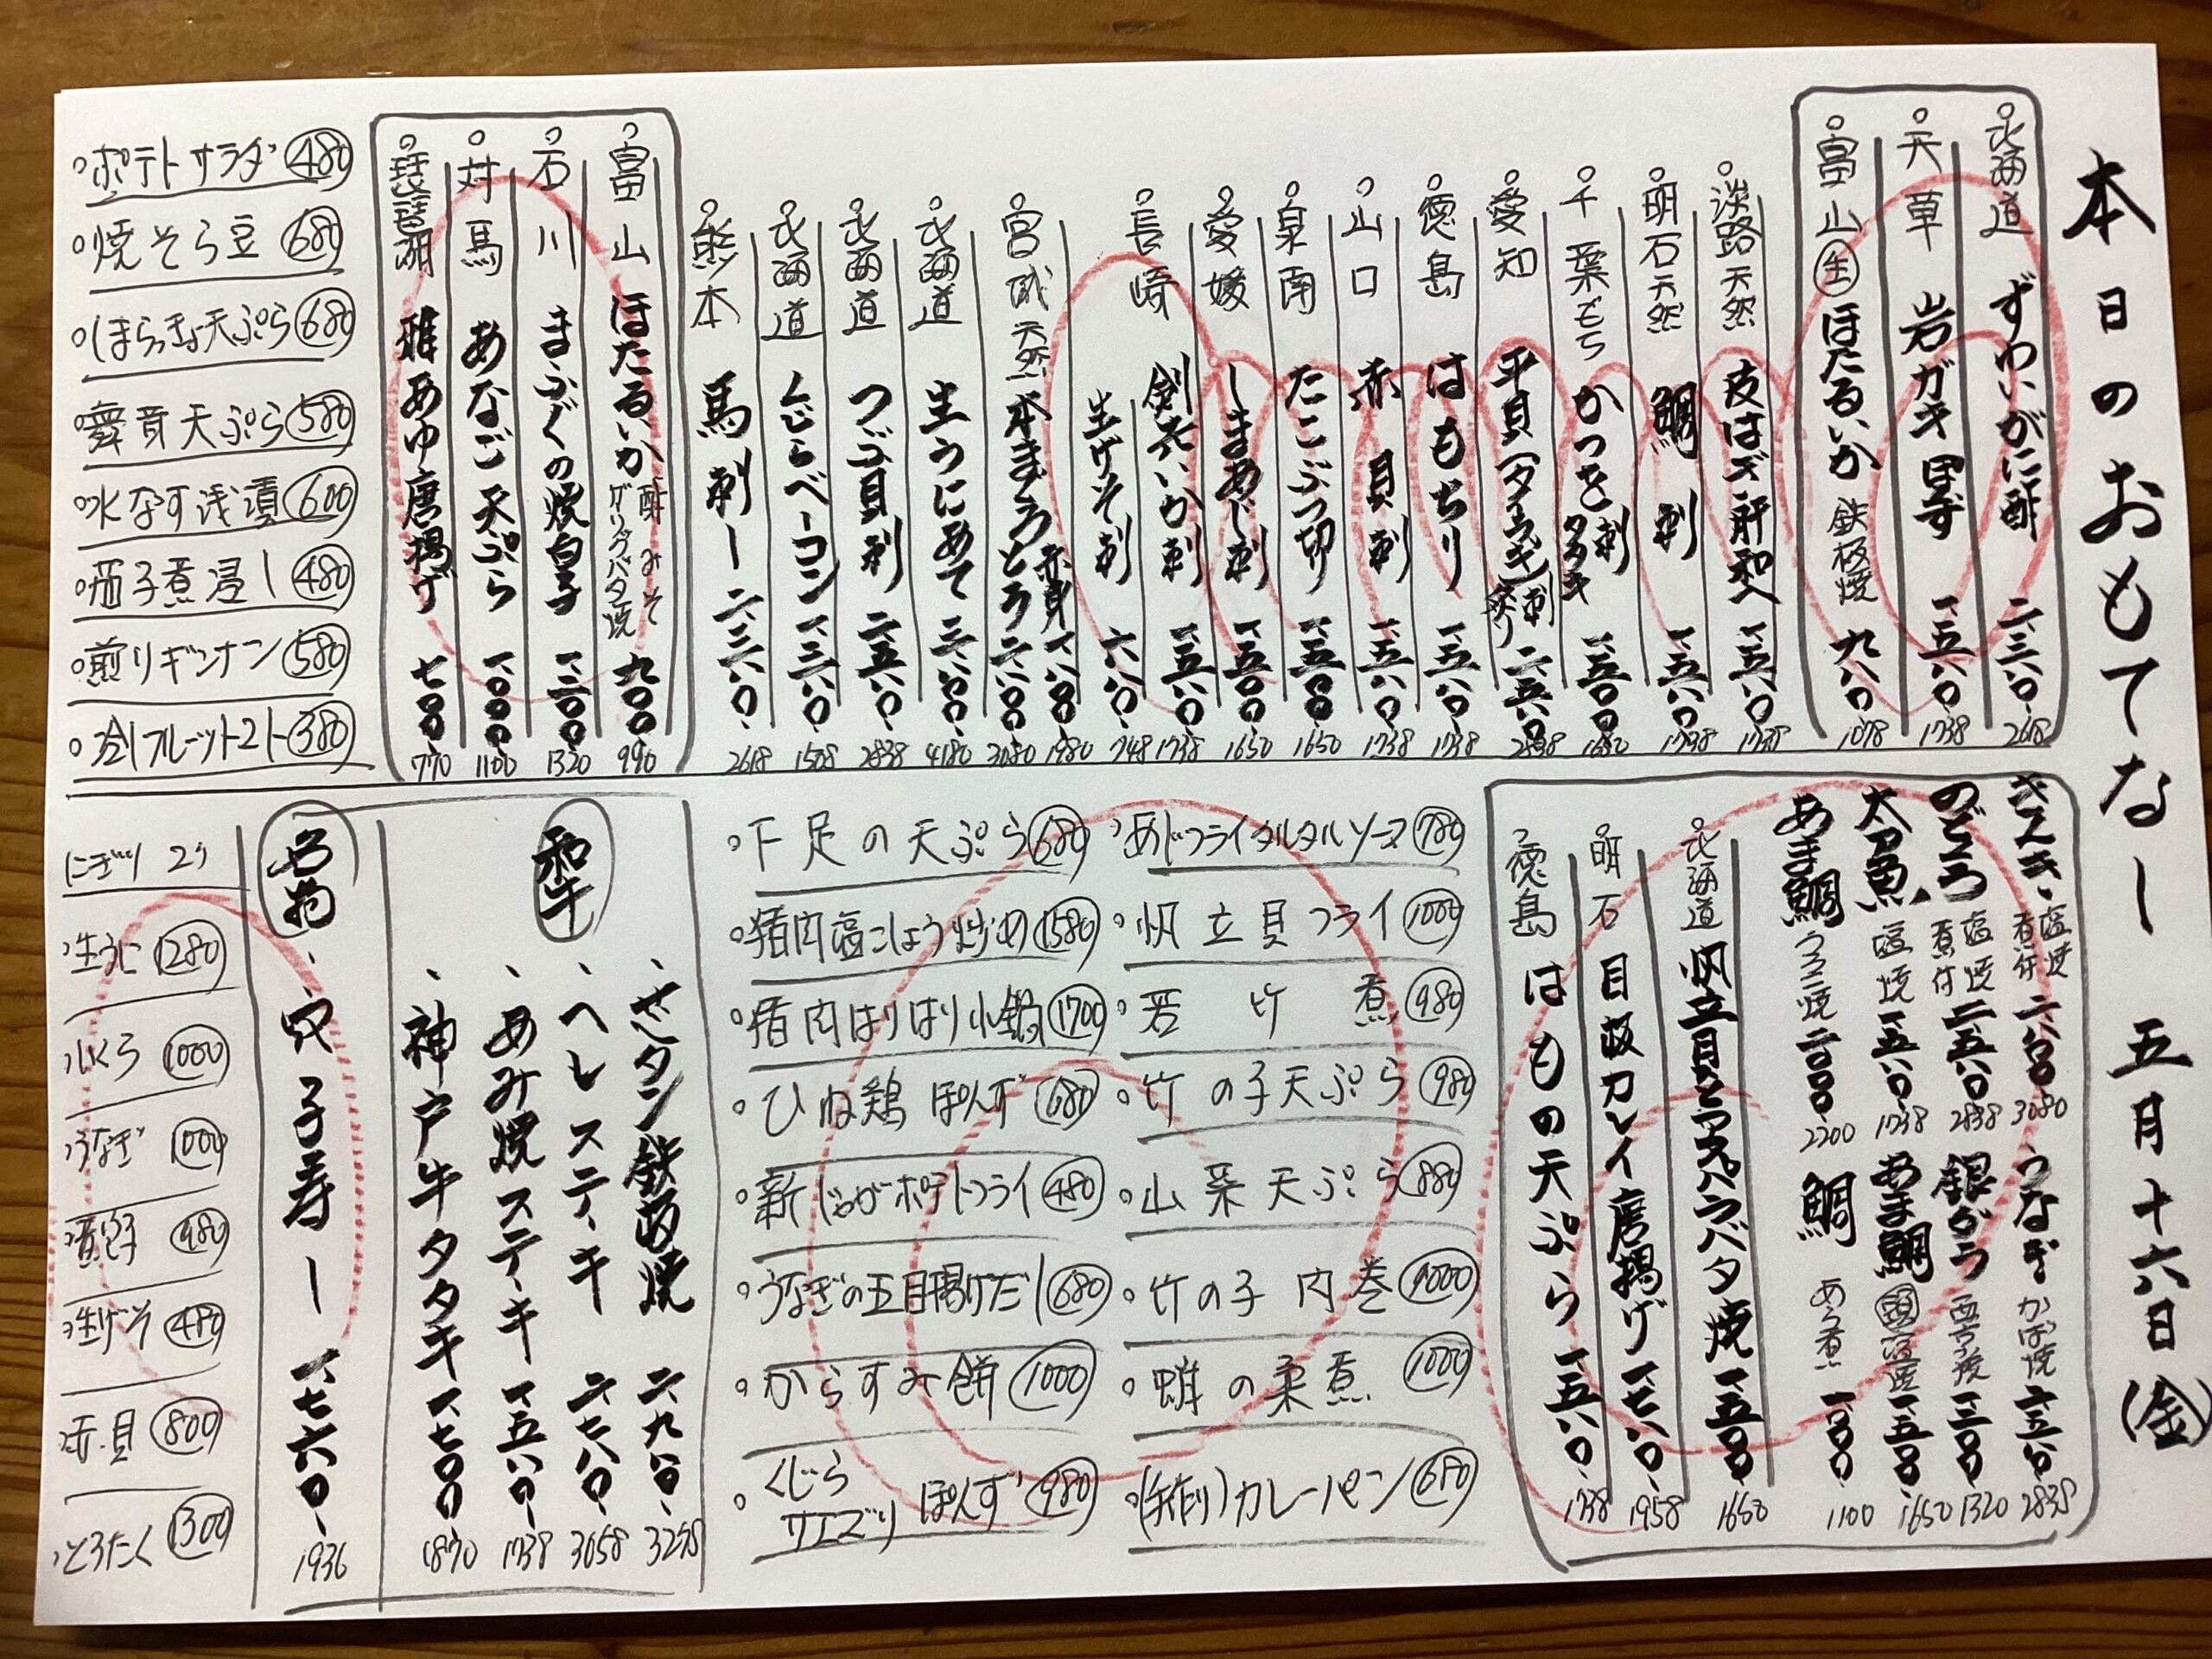 本日のおもてなし 五月十六日(金)
北海道 ずわいがに酢 二、三八〇 2618
天草 岩ガキ 一、五八〇 1738
富山 生 ほたるいか 鉄板焼 九八〇 1078
淡路天然 皮はぎ肝和へ 一、五八〇 1738
明石天然 鯛刺 一、五八〇 1738
千葉もち かつを刺 タタキ 一、五〇〇
愛知 平貝(タイラギ)刺 二、五八〇 2838
徳島 はもちり 一、五八〇 1738
山口 赤貝刺 一、五八〇 1738
泉南 たこぶつ切 一、五〇〇 1650
愛媛 しまあじ刺 一、五〇〇 1650
長崎 剣先いか刺 一、五八〇 1738
生げそ刺 六八〇 748
宮城天然 本まぐろ 赤身 一、八〇〇 1980
とろ 二、八〇〇 3080
北海道 生うにあて 三、八〇〇 4180
北海道 つぶ貝刺 二、五八〇 2838
北海道 くじらベーコン 一、三八〇 1508
熊本 馬刺し 二、三八〇 2618
富山 ほたるいか 酢みそ ガーリックバタ焼 九〇〇 990
石川 まふぐの焼白子 一、二〇〇 1320
対馬 あなご天ぷら 一、〇〇〇 1100
琵琶湖 稚あゆ唐揚げ 七〇〇 770
・ポテトサラダ 480
・焼そら豆 680
・しほらっきょ天ぷら 680
・舞茸天ぷら 580
・水なす浅漬 600
・茄子煮浸し 480
・煎りギンナン 580
・冷しフルーツトマト 380
きんき 塩焼 煮付 二、八〇〇 3080
うなぎ かば焼 二、五八〇 2838
のどぐろ 塩焼 煮付 二、五八〇 2838
銀ダラ 西京焼 一、二〇〇 1320
太刀魚 塩焼 一、五八〇 1738
あま鯛 頭塩焼 一、五〇〇 1650
あま鯛 ウロコ焼 二、〇〇〇 2200
鯛 あら煮 一、〇〇〇 1100
北海道 帆立貝とアスパラバタ焼 一、五〇〇 1650
明石 目板カレイ唐揚げ 一、七八〇 1958
徳島 はもの天ぷら 一、五八〇 1738
・あじフライタルタルソース 780
・帆立貝フライ 1000
・若竹煮 980
・竹の子天ぷら 980
・山菜天ぷら 880
・竹の子肉巻 1000
・蛸の柔煮 1000
・(手作り)カレーパン 680
・下足の天ぷら 680
・猪肉塩こしょう炒め 1580
・猪肉はりはり小鍋 1700
・ひね鶏ぽんず 680
・新じゃがポテトフライ 480
・うなぎの五目揚げだし 680
・からすみ餅 1000
・くじらサエズリぽんず 980
和牛
、タン鉄板焼 二、九八〇 3278
、ヘレステーキ 二、七八〇 3058
、あみ焼ステーキ 一、五八〇 1738
、神戸牛タタキ 一、七〇〇 1870
名物
、穴子寿し 一、七六〇 1936
にぎり 2ヶ
・生うに 1280
・いくら 1000
・うなぎ 1000
・煮穴子 480
・生げそ 480
・赤貝 800
・とろたく 1300